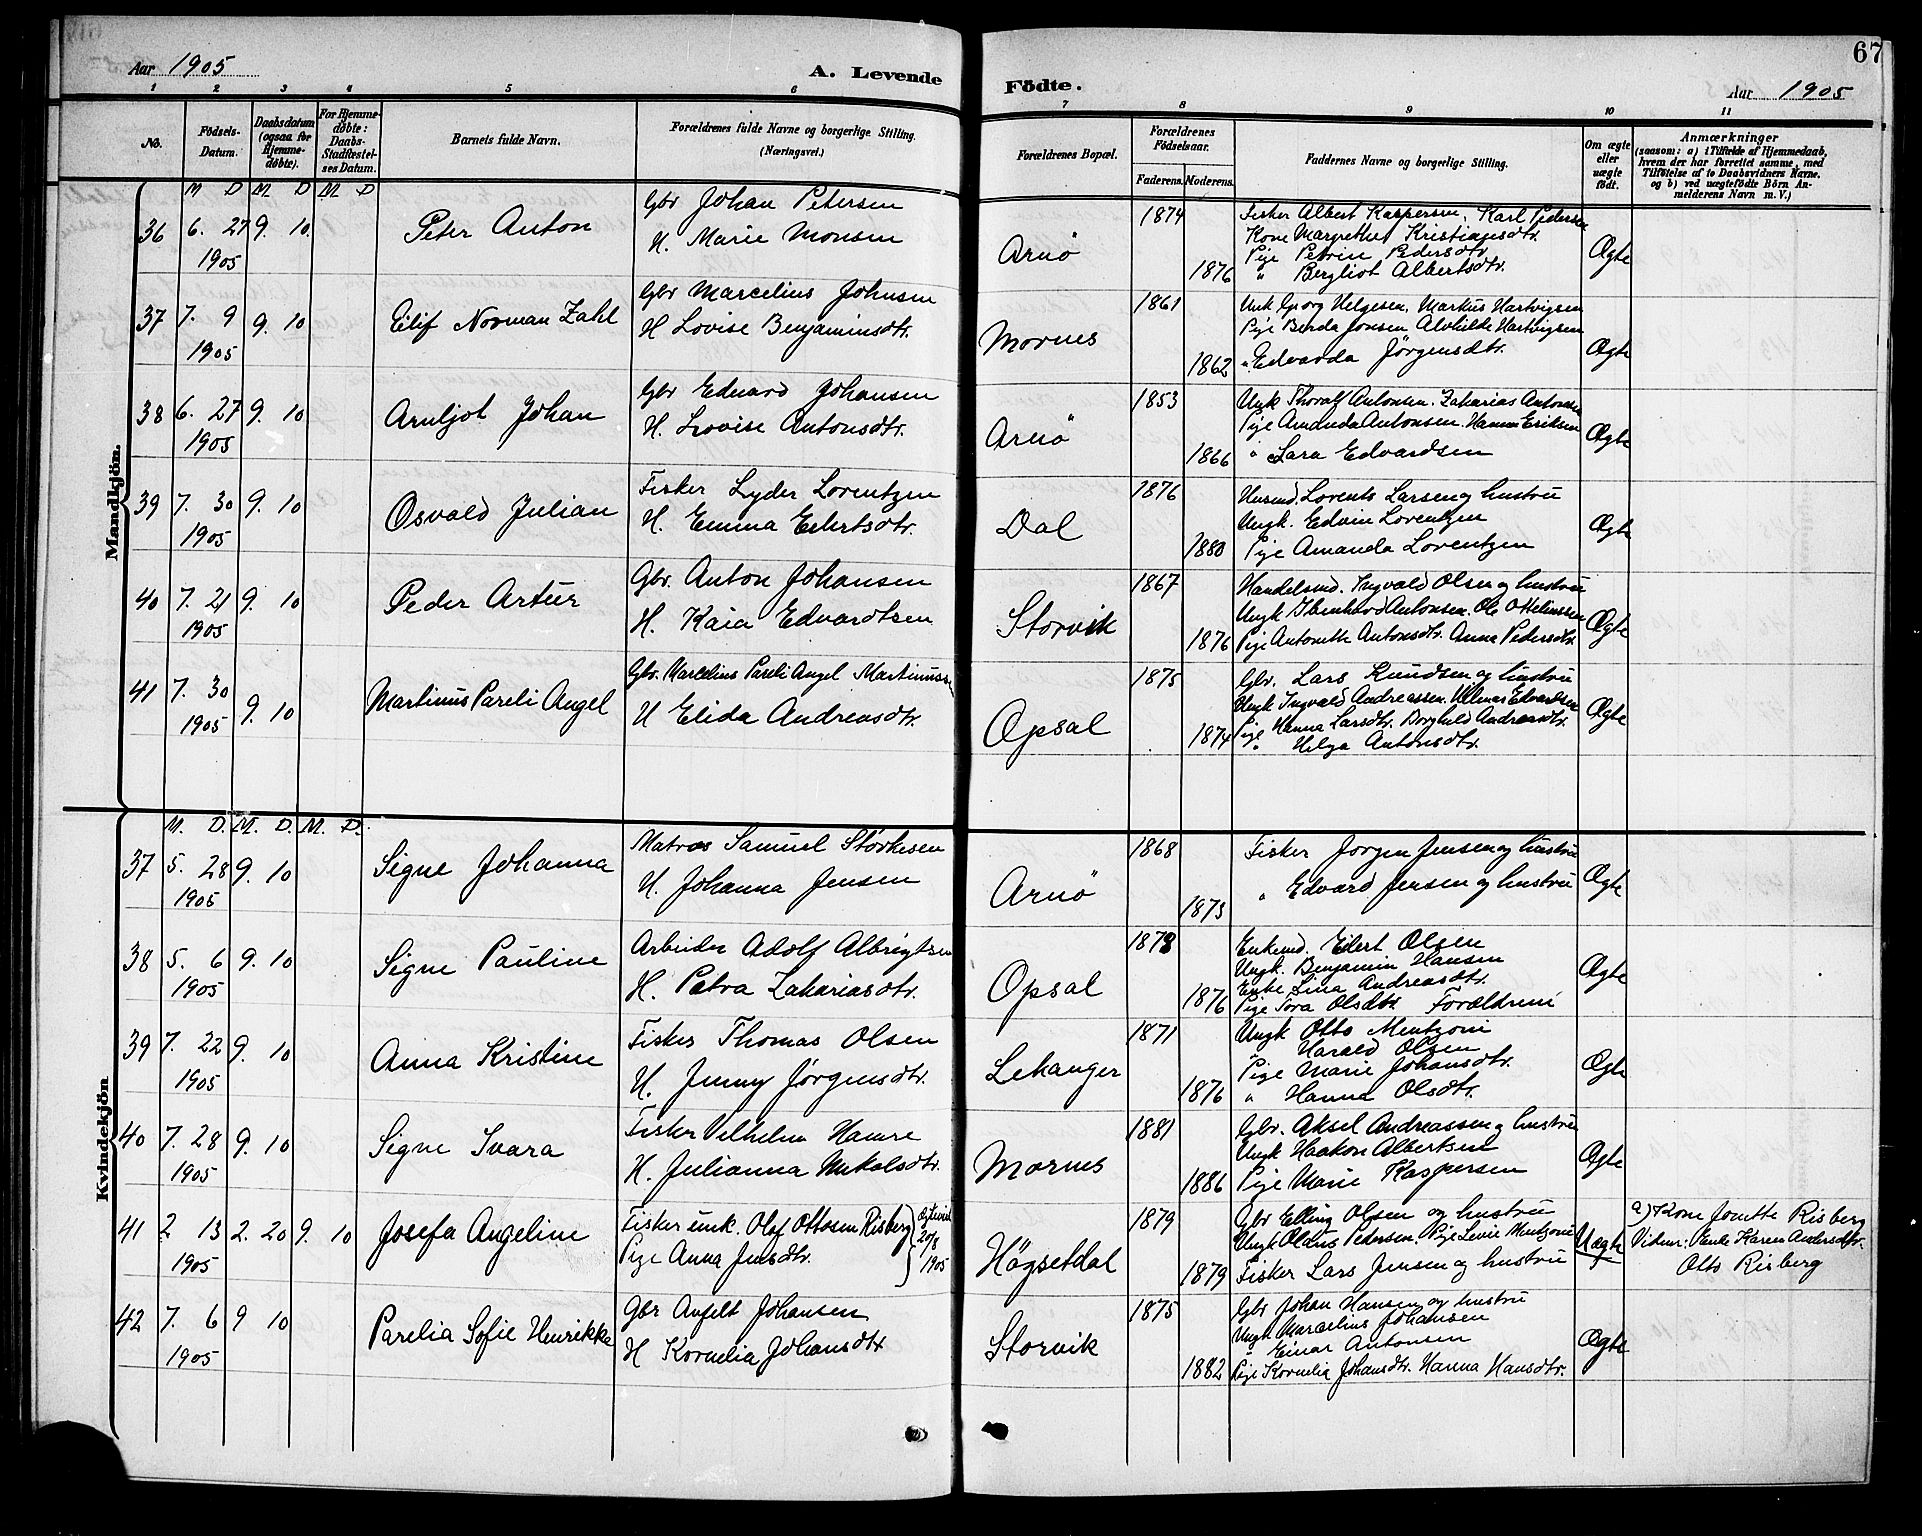 Aar 1905
A. Levende
Födte.
Aar 1905
67
1 2 3 4 5 6 7 8 9 10 11
No.
Födsels-
Datum.
Daabsdatum
(ogsaa for
Hjemme-
döbte).
For Hjemme-
döbte:
Daabs-
Stadfæstel-
ses Datum.
Barnets fulde Navn.
Forældrenes fulde Navne og borgerlige Stilling.
(Næringsvei.)
Forældrenes Bopæl.
Forældrenes
Födselsaar.
Faderens. Moderens.
Faddernes Navne og borgerlige Stilling.
Om ægte
eller
uægte
födt.
Anmærkninger
(saasom: a) i Tilfælde af Hjemmedaab,
hvem der har forrettet samme, med
Tilföielse af to Daabsvidners Navne.
og b) ved uægtefödte Börn An-
melderens Navn m. V.)
Mandkjön.
M D M D M D
36 6. 27 9. 10.
1905
Peter Anton
Gbr Johan Petersen
H. Marie Monsen
Arnö
1874
1876
Fisker Albert Kaspersen. Karl Pedersen
Kone Margrethe Kristiansdtr.
Pige Petrin Pedersdtr
" Bergliot Albertsdtr.
Ægte
37 7. 9 9. 10
1905
Eilif Norman Zahl
Gbr Marcelius Johnsen
H Lovise Benjaminsdtr.
Mornes
1861
1862
Unk Georg Helgesen. Markus Hartvigsen
Pige Berda Jonsen Alvhilde Hartvigsen
" Edvarda Jörgensdtr.
Ægte
38 6. 27 9. 10
1905
Arnljot Johan
Gbr Edvard Johansen
H. Lovise Antonsdtr.
Arnö
1853
1866
Ungk Thoralf Antonsen. Zakarias Antonsen
Pige Amanda Antonsen. Hanna Eriksen
" Lara Edvardsen
Ægte
39 7. 30 9. 10
1905
Osvald Julian
Fisker Lyder Lorentzen
H. Emma Eilertsdtr.
Dal
1876
1880
Husmd. Lorents Larsen og hustru
Ungk. Edvin Lorentzen
Pige Amanda Lorentzen
Ægte
40 7. 21 9. 10
1905
Peder Artur
Gbr. Anton Johansen
H. Kaia Edvardtsen
Storvik
1867
1876
Handelsmd. Ingvald Olsen og hustru
Ungk Ibenhard Antonsen. Ole Ottelinssen
Pige Antonette Antonsdtr. Anna Pedersdtr.
Ægte
41 7. 30 9. 10
1905
Martinus Pareli Angel
Gbr. Marcelius Pareli Angel Martinussen
H Elida Andreasdtr.
Opsal
1875
1874
Gbr. Lars Knudsen og hustru
Ungk Ingvald Andreassen. Hilmar Edvardsen
Pige Hanna Larsdtr. Borghild Andreasdtr.
" Helga Antonsdtr.
Ægte
Kvindekjön
M. D. M. D. M. D.
37 5. 28 9. 10
1905
Signe Johanna
Matros Samuel Störkesen
H. Johanna Jensen
Arnö
1868
1873
Fisker Jörgen Jensen og hustru
" Edvard Jensen og hustru
Ægte
38 5. 6 9. 10
1905
Signe Pauline
Arbeider Adolf Albrigtsen
H. Petra Zakariasdtr.
Opsal
1878
1876
Enkemd. Eilert Olsen
Ungk. Benjamin Hansen
Enke Lina Andreasdtr.
Pige Tora Olsdtr. Forældrene
Ægte
39 7. 22 9. 10
1905
Anna Kristine
Fisker Thomas Olsen
H. Jenny Jörgensdtr.
Lekanger
1871
1876
Ungk Otto Mentzoni
" Harald Olsen
Pige Marie Johansdtr.
" Hanna Olsdtr.
Ægte
40 7. 28 9. 10
1905
Signe Ivara
Fisker Vilhelm Hamre
H. Julianna Mikalsdtr.
Mornes
1881
1886
Gbr. Aksel Andreassen og hustru
Ungk Haakon Albertsen
Pige Marie Kaspersen
Ægte
41 2 13 2. 20 9. 10
1905
Josefa Angeline
Fisker unk. Olaf Ottosen Risberg
Pige Anna Jensdtr.
20/8
1905
Högsetdal
1879
1879
Gbr Elling Olsen og hustru
Ungk Oldus Pedersen. Pige Levie Mentzoni
Fisker Lars Jensen og hustru
Uægte
a) Kone Jonette Risberg
Vidner: Enke Karen Andersdtr.
Otto Risberg
42 7. 6 9 10
1905
Parelia Sofie Henrikka
Gbr Anfelt Johansen
H Kornelia Johansdtr
Storvik
1875
1882
Gbr Johan Hansen og hustru
Ungk Marcelius Johansen
" Einar Antonsen
Pige Kornelia Johansdtr. Hanna Hansdtr.
Ægte